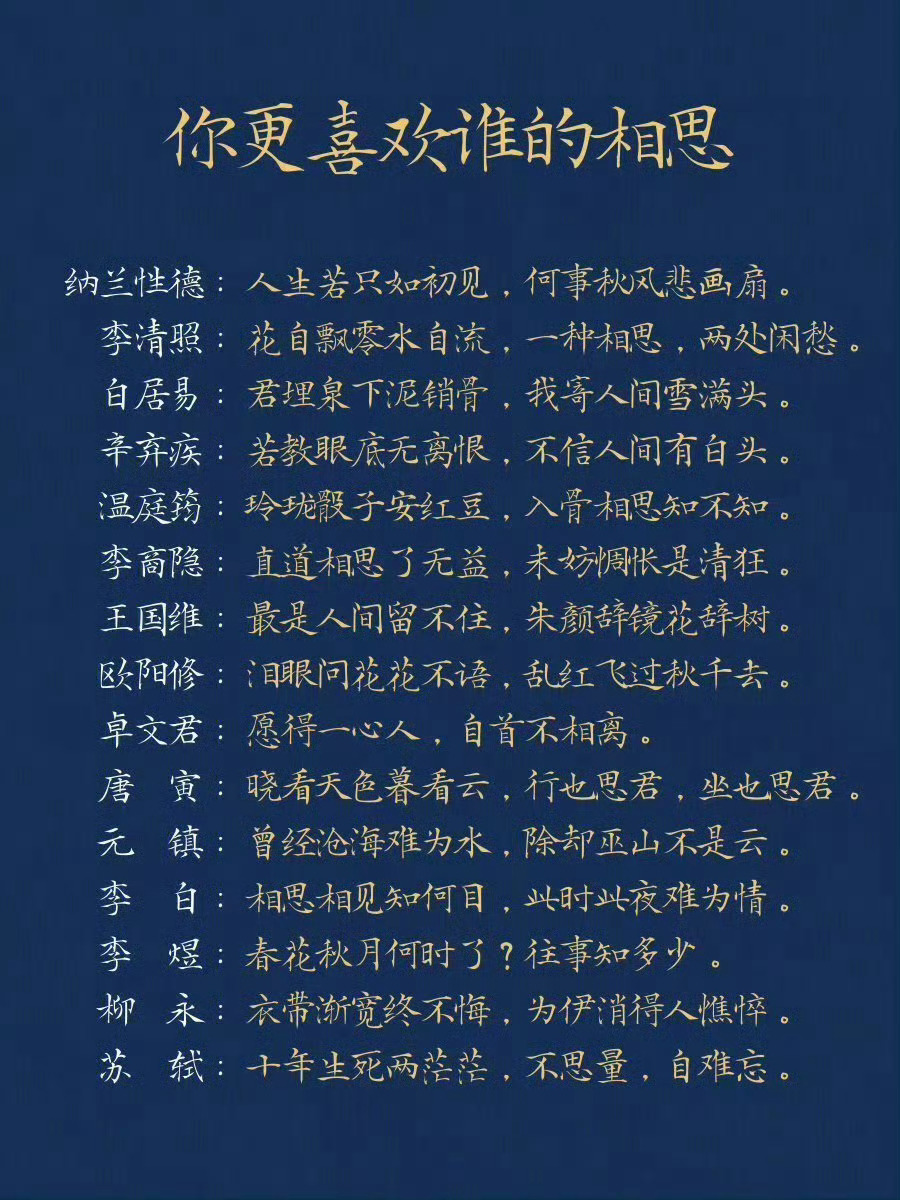 你更喜欢谁的相思
纳兰性德：人生若只如初见，何事秋风悲画扇。
李清照：花自飘零水自流，一种相思，两处闲愁。
白居易：君埋泉下泥销骨，我寄人间雪满头。
辛弃疾：若教眼底无离恨，不信人间有白头。
温庭筠：玲珑骰子安红豆，入骨相思知不知。
李商隐：直道相思了无益，未妨惆怅是清狂。
王国维：最是人间留不住，朱颜辞镜花辞树。
欧阳修：泪眼问花花不语，乱红飞过秋千去。
卓文君：愿得一心人，白首不相离。
唐　寅：晓看天色暮看云，行也思君，坐也思君。
元　镇：曾经沧海难为水，除却巫山不是云。
李　白：相思相见知何日，此时此夜难为情。
李　煜：春花秋月何时了？往事知多少。
柳　永：衣带渐宽终不悔，为伊消得人憔悴。
苏　轼：十年生死两茫茫，不思量，自难忘。